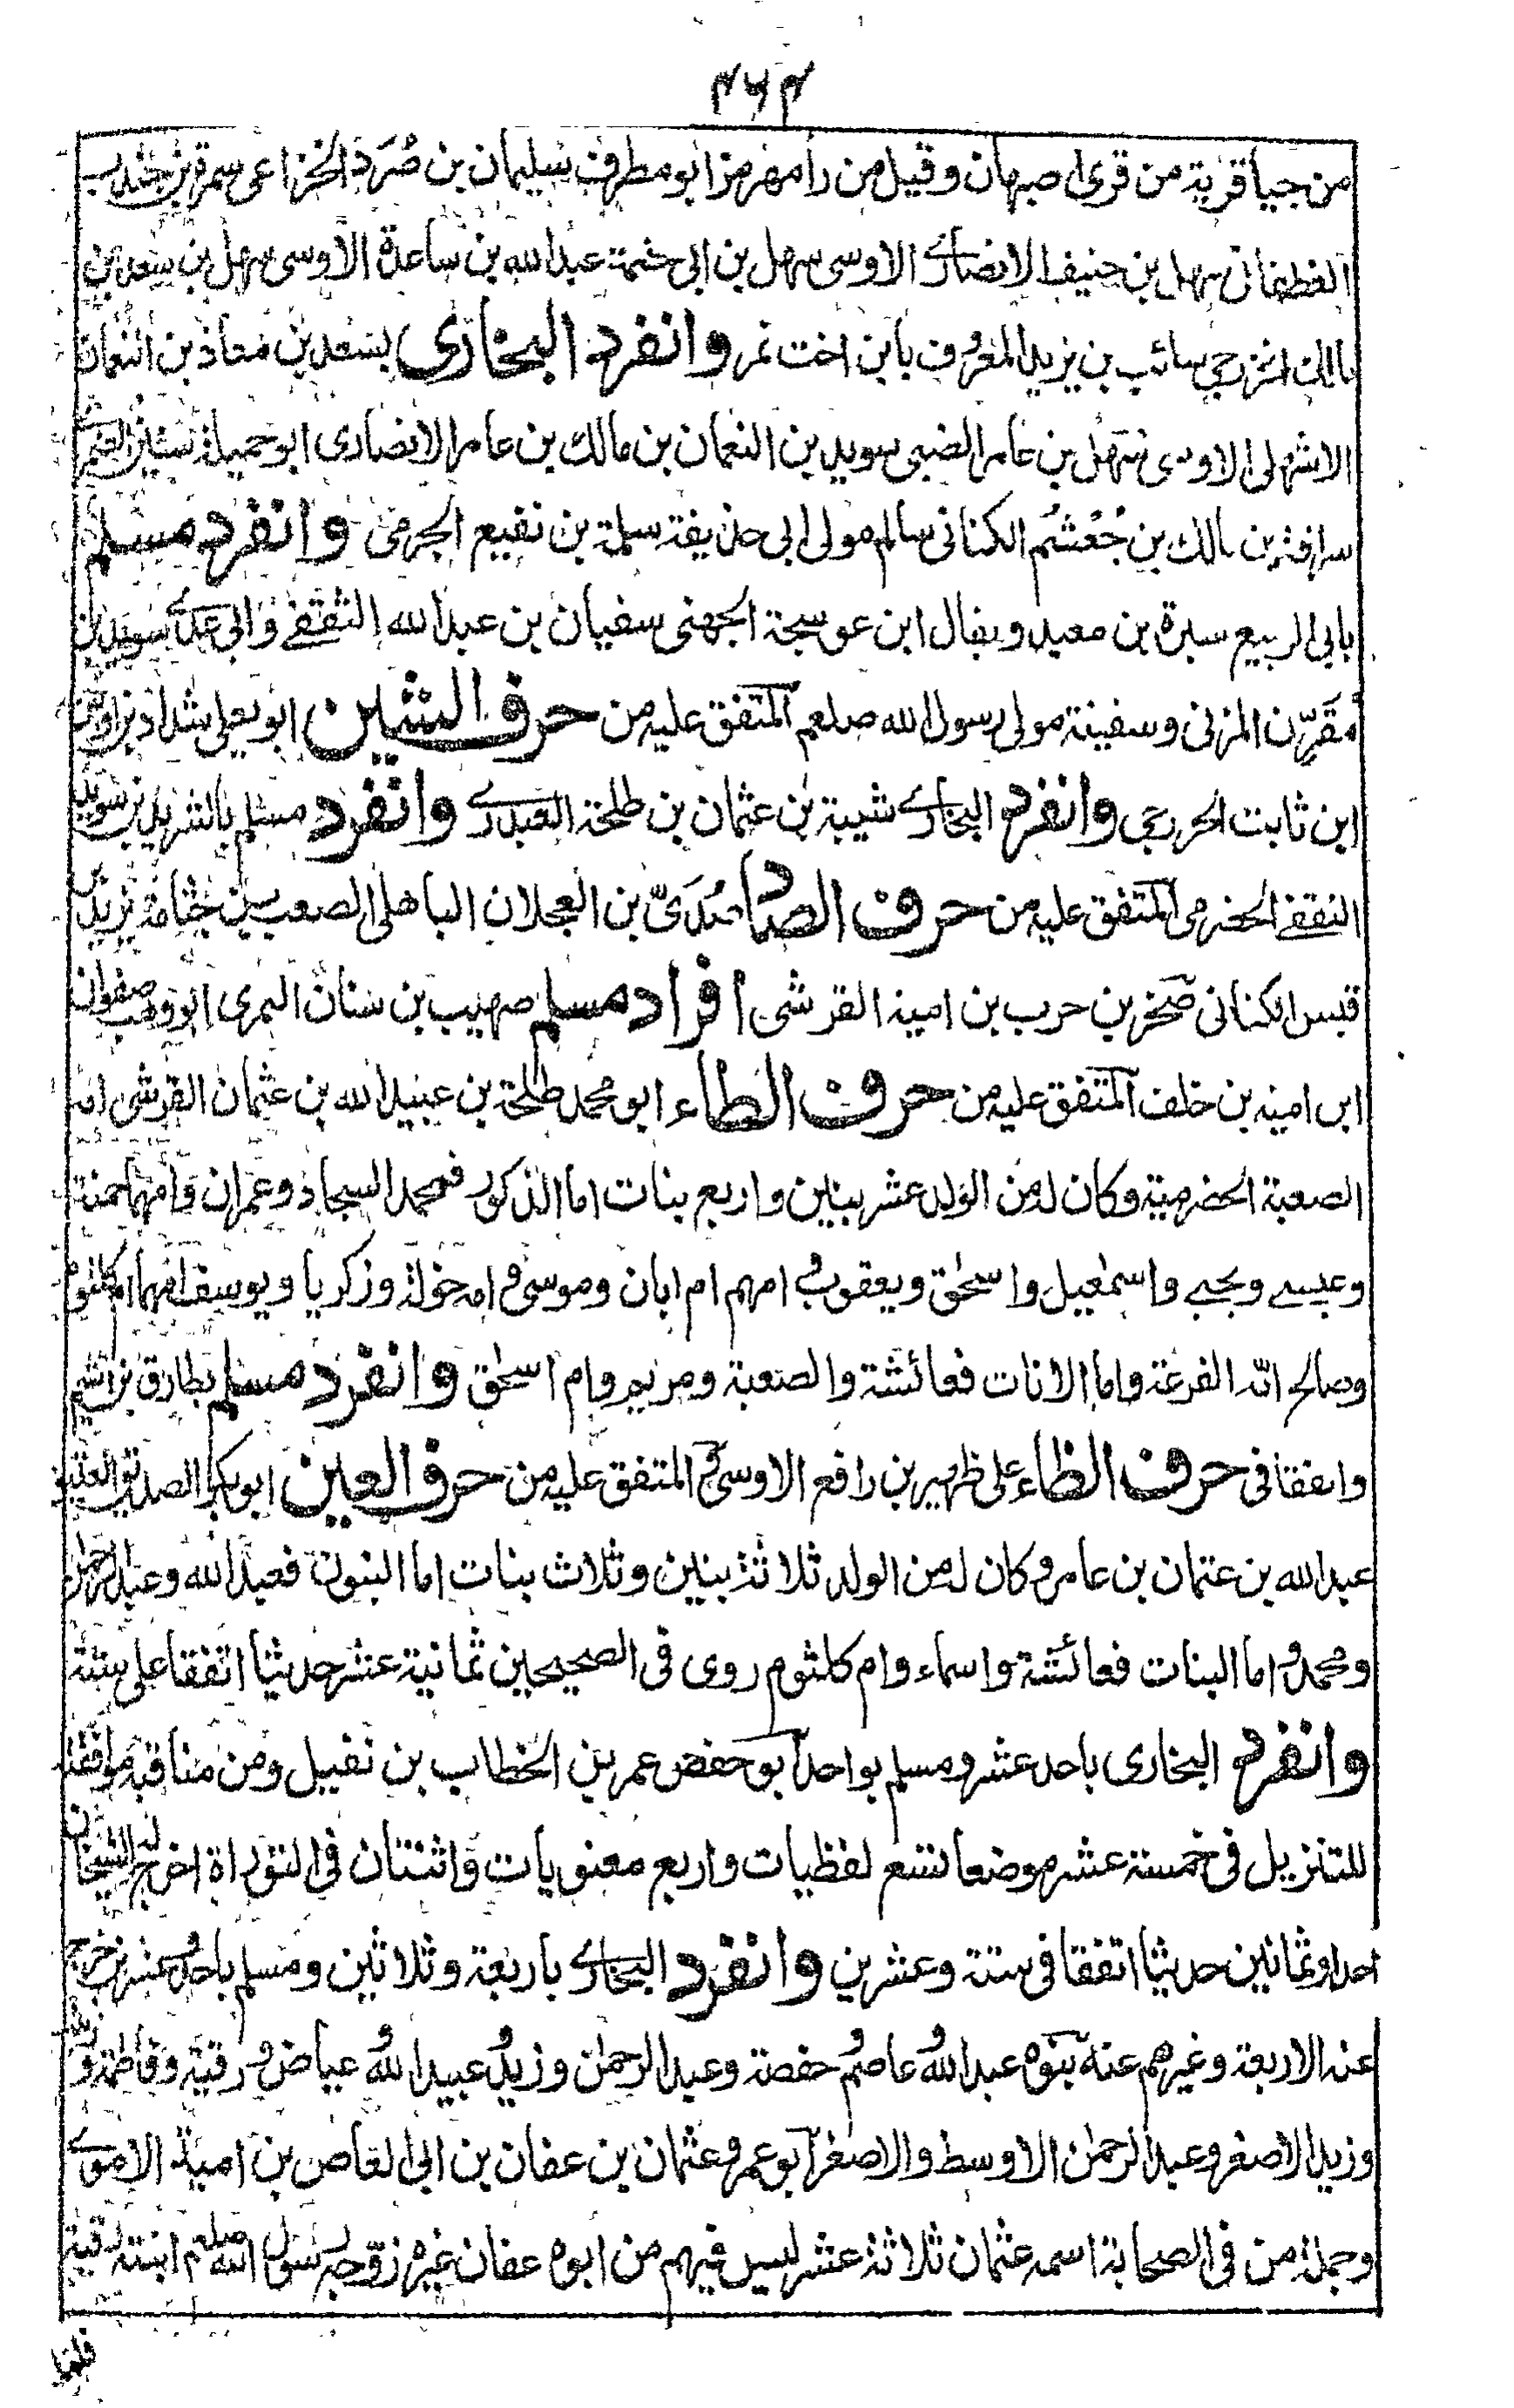 ۴۶۴
من جيأ قرية من قرى اصبهان وقيل من رامهرمز ابو مطرف سليمان بن صُرَد الخزاعى سمرة بن جندب
الغطفانى سهل بن حنيف الانصارى الاوسى سهل بن ابى حثمة عبدالله بن ساعدة الاوسى سهل بن سعد بن
مالك الخزرجى سائب بن يزيد المعروف بابن اخت نمر وانفرد البخارى بسعد بن معاذ بن النعمان
الاشهلى الاوسى سهل بن عامر الضبى سويد بن النعمان بن مالك بن عامر الانصارى ابو جميلة سنين
سراقة بن مالك بن جُعْشُم الكنانى سالم مولى ابى حذيفة سلمة بن نفيع الجرمى وانفرد مسلم
بابى الربيع سبرة بن معبد ويقال ابن عوسجة الجهنى سفيان بن عبدالله الثقفى وابى عدى سويد بن
مُقَرِّن المزنى وسفينة مولى رسول الله صلعم المتفق عليه من حرف الشين ابو يعلى شداد بن اوس
ابن ثابت الخررجى وانفرد البخارى شيبة بن عثمان بن طلحة العبدرى وانفرد مسلم بالشريد بن سويد
الثقفى الحضرمى المتفق عليه من حرف الصاد صُدَىّ بن العجلان الباهلى الصعب بن جثامة يزيد بن
قيس الكنانى صخر بن حرب بن امية القرشى افراد مسلم صهيب بن سنان النمرى ابو وهب صفوان
ابن امية بن خلف المتفق عليه من حرف الطاء ابو محمد طلحة بن عبيدالله بن عثمان القرشى امه
الصعبة الحضرمية وكان له من الولد عشر بنين واربع بنات اما الذكور فمحمد السجاد وعمران وامهما حمنة
وعيسى ويحيى واسمعيل واسحق ويعقوب و امهم ام ابان وموسى و امه خولة وزكريا ويوسف امهما ام كلثوم
وصالح امه الفرعة واما الاناث فعائشة والصعبة ومريم وام اسحق وانفرد مسلم بطارق بن اشيم
واتفقا فى حرف الظاء على ظهير بن رافع الاوسى و المتفق عليه من حرف العين ابوبكر الصديق العتيق
عبدالله بن عثمان بن عامر و كان له من الولد ثلاثة بنين وثلاث بنات اما البنون فعبدالله وعبدالرحمن
ومحمد و اما البنات فعائشة واسماء وام كلثوم روى فى الصحيحين ثمانية عشر حديثا اتفقا على ستة
وانفرد البخارى باحد عشر ومسلم بواحد ابو حفص عمر بن الخطاب بن نفيل ومن مناقبه موافقته
للتنزيل فى خمسة عشر موضعا تسع لفظيات واربع معنويات واثنتان فى التوراة اخرج له الشيخان
احدا وثمانين حديثا اتفقا فى ستة وعشرين وانفرد البخارى باربعة وثلاثين ومسلم باحد وعشرين خرج
عنه الاربعة وغيرهم عنه بنوه عبدالله و عاصم و حفصة وعبدالرحمن وزيد و عبيدالله و عياض و رقية وفاطمة و
وزيد الاصغر وعبدالرحمن الاوسط والاصغر ابو عمرو عثمان بن عفان بن ابى العاص بن امية الاموى
وجملة من فى الصحابة اسمه عثمان ثلاثة عشر ليس فيهم من ابوه عفان غيره زوجه رسول الله صلعم ابنته رقية
فلما